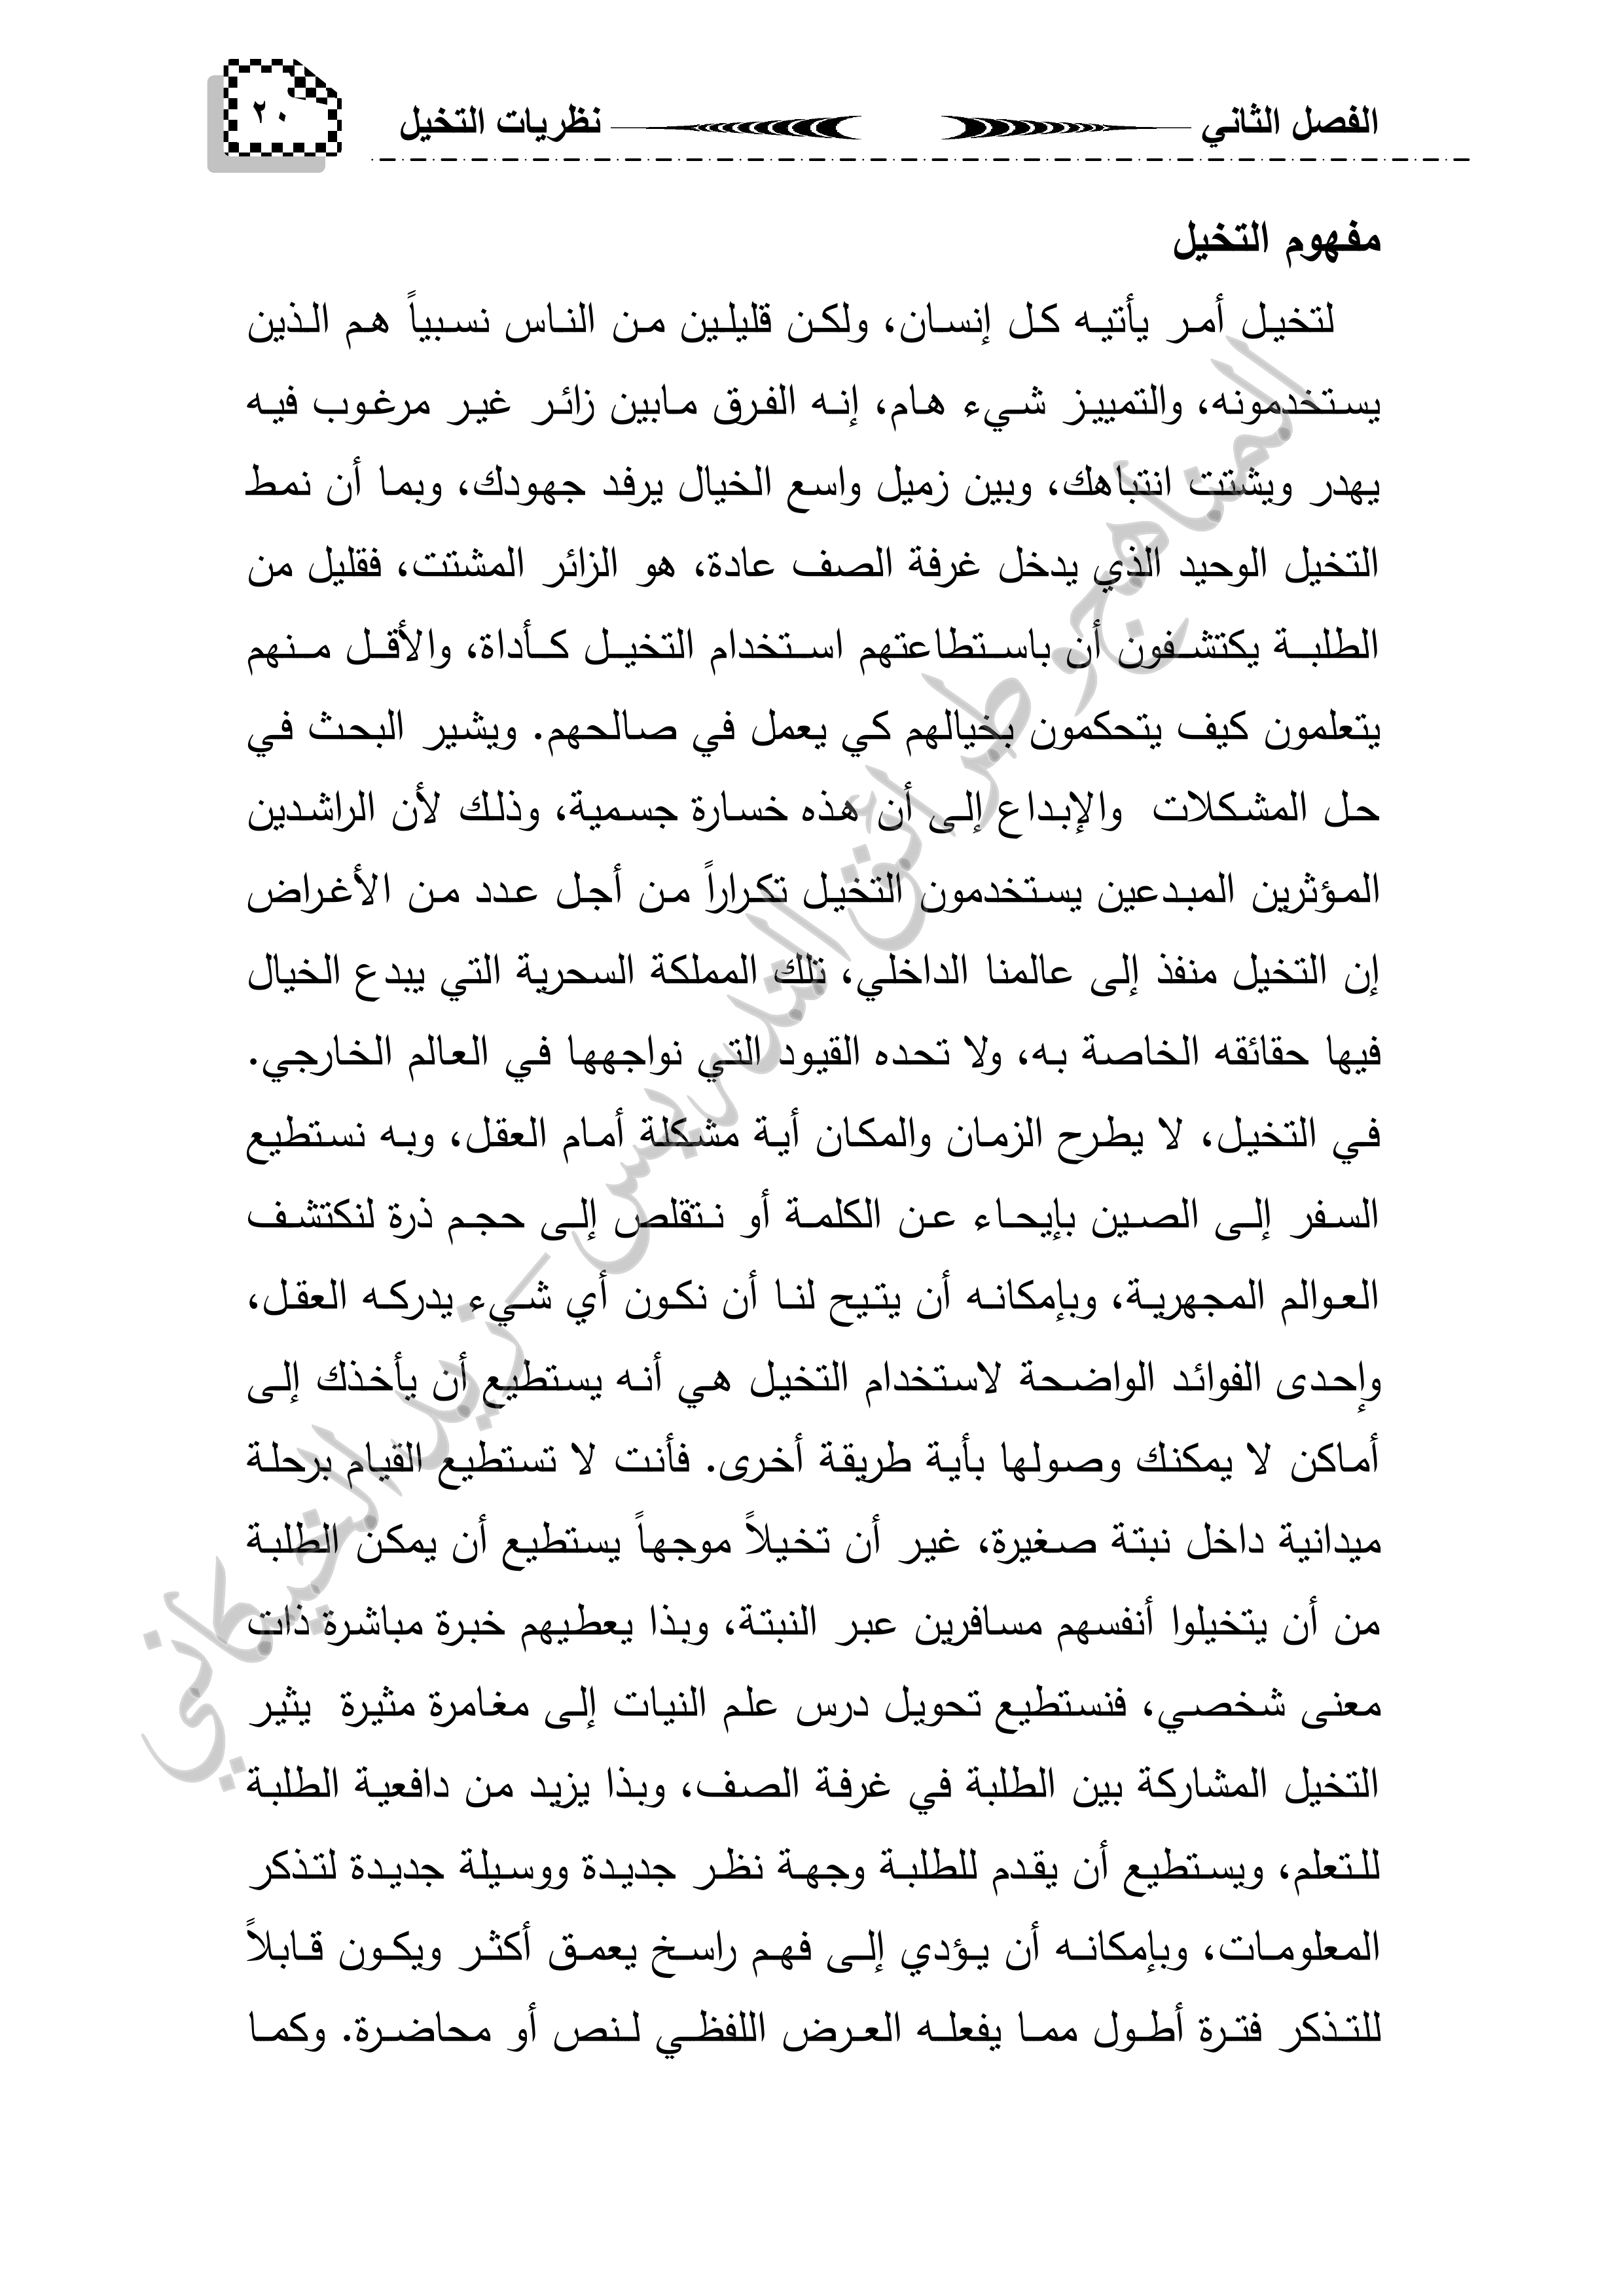 الفصل الثاني
نظريات التخيل
٢٠
مفهوم التخيل
لتخيل أمر يأتيه كل إنسان، ولكن قليلين من الناس نسبياً هم الذين
يستخدمونه، والتمييز شيء هام، إنه الفرق مابين زائر غير مرغوب فيه
يهدر ويشتت انتباهك، وبين زميل واسع الخيال يرفد جهودك، وبما أن نمط
التخيل الوحيد الذي يدخل غرفة الصف عادة، هو الزائر المشتت، فقليل من
الطلبة يكتشفون أن باستطاعتهم استخدام التخيل كأداة، والأقل منهم
يتعلمون كيف يتحكمون بخيالهم كي يعمل في صالحهم. ويشير البحث في
حل المشكلات والإبداع إلى أن هذه خسارة جسمية، وذلك لأن الراشدين
المؤثرين المبدعين يستخدمون التخيل تكراراً من أجل عدد من الأغراض
إن التخيل منفذ إلى عالمنا الداخلي، تلك المملكة السحرية التي يبدع الخيال
فيها حقائقه الخاصة به، ولا تحده القيود التي نواجهها في العالم الخارجي.
في التخيل، لا يطرح الزمان والمكان أية مشكلة أمام العقل، وبه نستطيع
السفر إلى الصين بإيحاء عن الكلمة أو نتقلص إلى حجم ذرة لنكتشف
العوالم المجهرية، وبإمكانه أن يتيح لنا أن نكون أي شيء يدركه العقل،
وإحدى الفوائد الواضحة لاستخدام التخيل هي أنه يستطيع أن يأخذك إلى
أماكن لا يمكنك وصولها بأية طريقة أخرى. فأنت لا تستطيع القيام برحلة
ميدانية داخل نبتة صغيرة، غير أن تخيلاً موجهاً يستطيع أن يمكن الطلبة
من أن يتخيلوا أنفسهم مسافرين عبر النبتة، وبذا يعطيهم خبرة مباشرة ذات
معنى شخصي، فنستطيع تحويل درس علم النيات إلى مغامرة مثيرة يثير
التخيل المشاركة بين الطلبة في غرفة الصف، وبذا يزيد من دافعية الطلبة
للتعلم، ويستطيع أن يقدم للطلبة وجهة نظر جديدة ووسيلة جديدة لتذكر
المعلومات، وبإمكانه أن يؤدي إلى فهم راسخ يعمق أكثر ويكون قابلاً
للتذكر فترة أطول مما يفعله العرض اللفظي لنص أو محاضرة. وكما
المناهج وطرائق التدريس - زيد الخيكاني